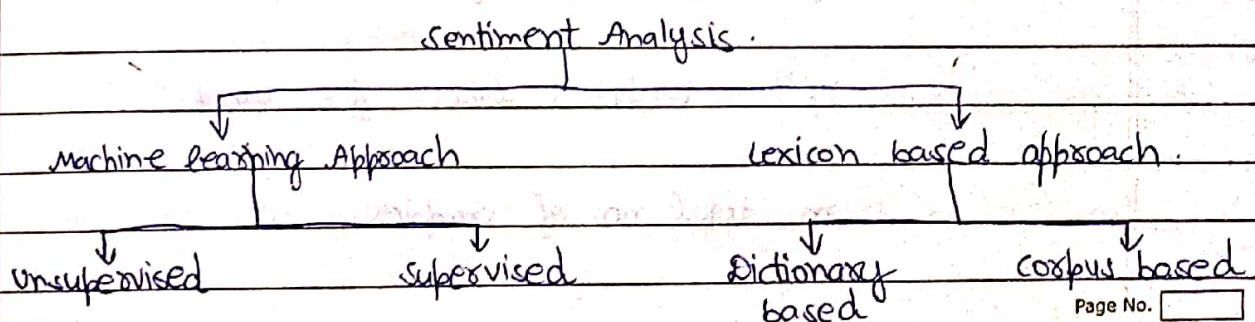 Sentiment Analysis.
Machine learning Approach Lexicon based approach.
Unsupervised Supervised Dictionary based Corpus based
Page No.